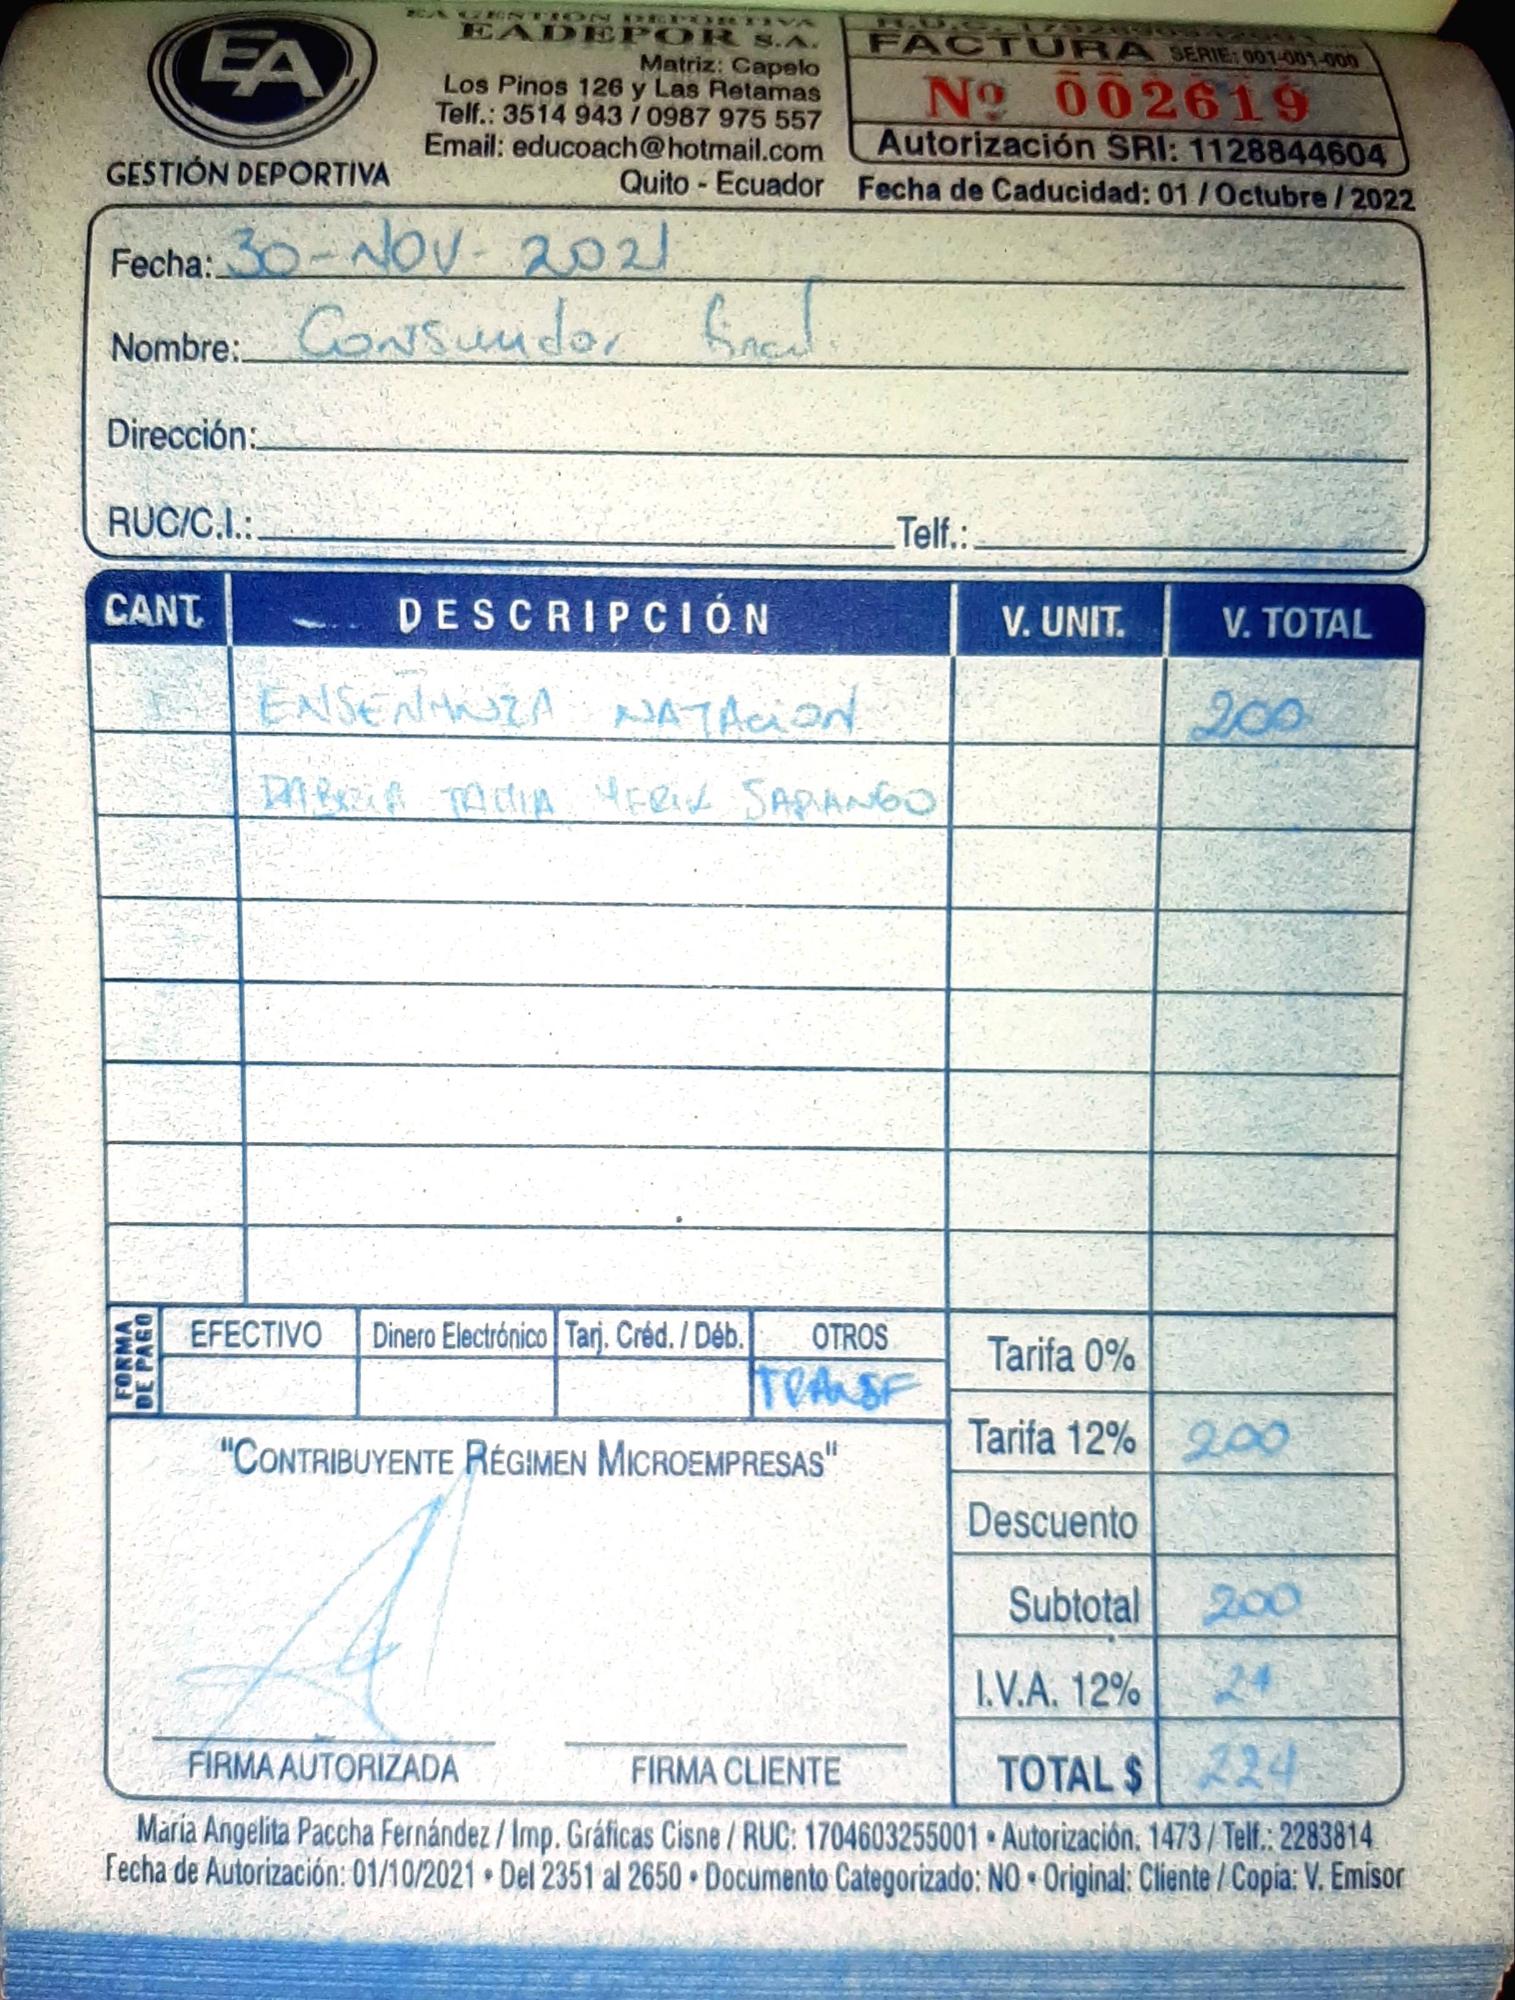 EA GESTIÓN DEPORTIVA
EADEPOR S.A.
Matriz: Capelo
Los Pinos 126 y Las Retamas
Telf.: 3514 943 / 0987 975 557
Email: educoach@hotmail.com
Quito - Ecuador
EA
GESTIÓN DEPORTIVA
R.U.C.
FACTURA SERIE: 001-001-000
Nº 002619
Autorización SRI: 1128844604
Fecha de Caducidad: 01 / Octubre / 2022
Fecha: 30-NOV-2021
Nombre: Consumidor final.
Dirección:
RUC/C.I.: Telf.:
CANT. DESCRIPCIÓN V. UNIT. V. TOTAL
ENSEÑANZA NATACION 200
SARANGO
FORMA DE PAGO
EFECTIVO Dinero Electrónico Tarj. Créd. / Déb. OTROS
TRANSF
Tarifa 0%
Tarifa 12% 200
Descuento
Subtotal 200
I.V.A. 12% 24
TOTAL $ 224
"CONTRIBUYENTE RÉGIMEN MICROEMPRESAS"
FIRMA AUTORIZADA FIRMA CLIENTE
María Angelita Paccha Fernández / Imp. Gráficas Cisne / RUC: 1704603255001 • Autorización. 1473 / Telf.: 2283814
Fecha de Autorización: 01/10/2021 • Del 2351 al 2650 • Documento Categorizado: NO • Original: Cliente / Copia: V. Emisor